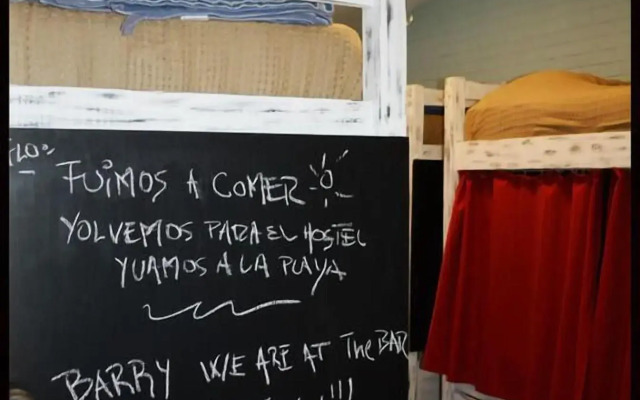 FLO:
FUIMOS A COMER
YOLVEMOS PARA EL HOSTEL
YVAMOS A LA PLAYA
BARRY WE ARE AT The BAR
!!!